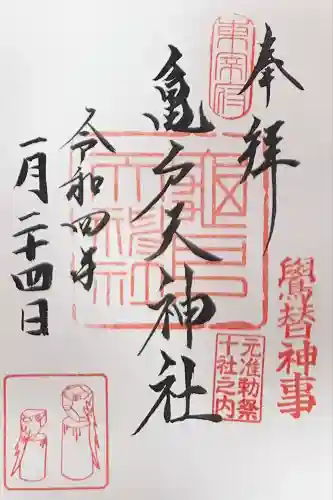 東宰府
奉拝
鷽替神事
元准勅祭
十社之内
亀戸天神社
令和四年
一月二十四日